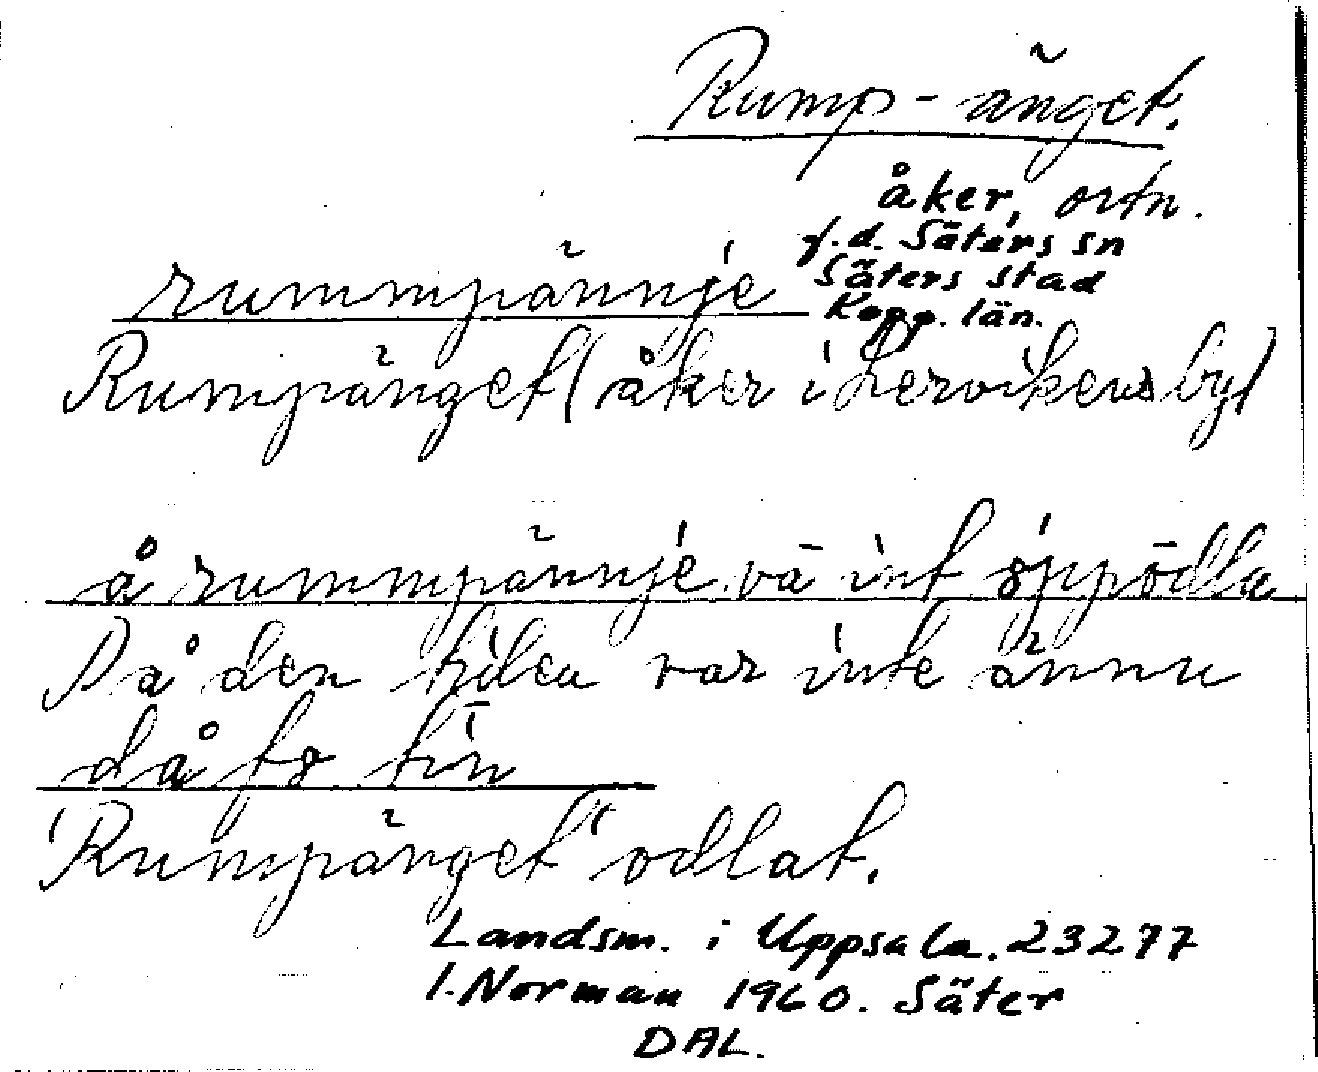 Rump-änget.
åker, ortn.
f.d. Säters sn
rummpännje Säters stad
Kopp. län.
Rumpänget (åker i Lervikens by)
å rummpännje vā int öppōdla
På den tiden var inte ännu
då fö tīn
"Rumpänget" odlat.
Landsm. i Uppsala. 23277
I. Norman 1960. Säter
DAL.